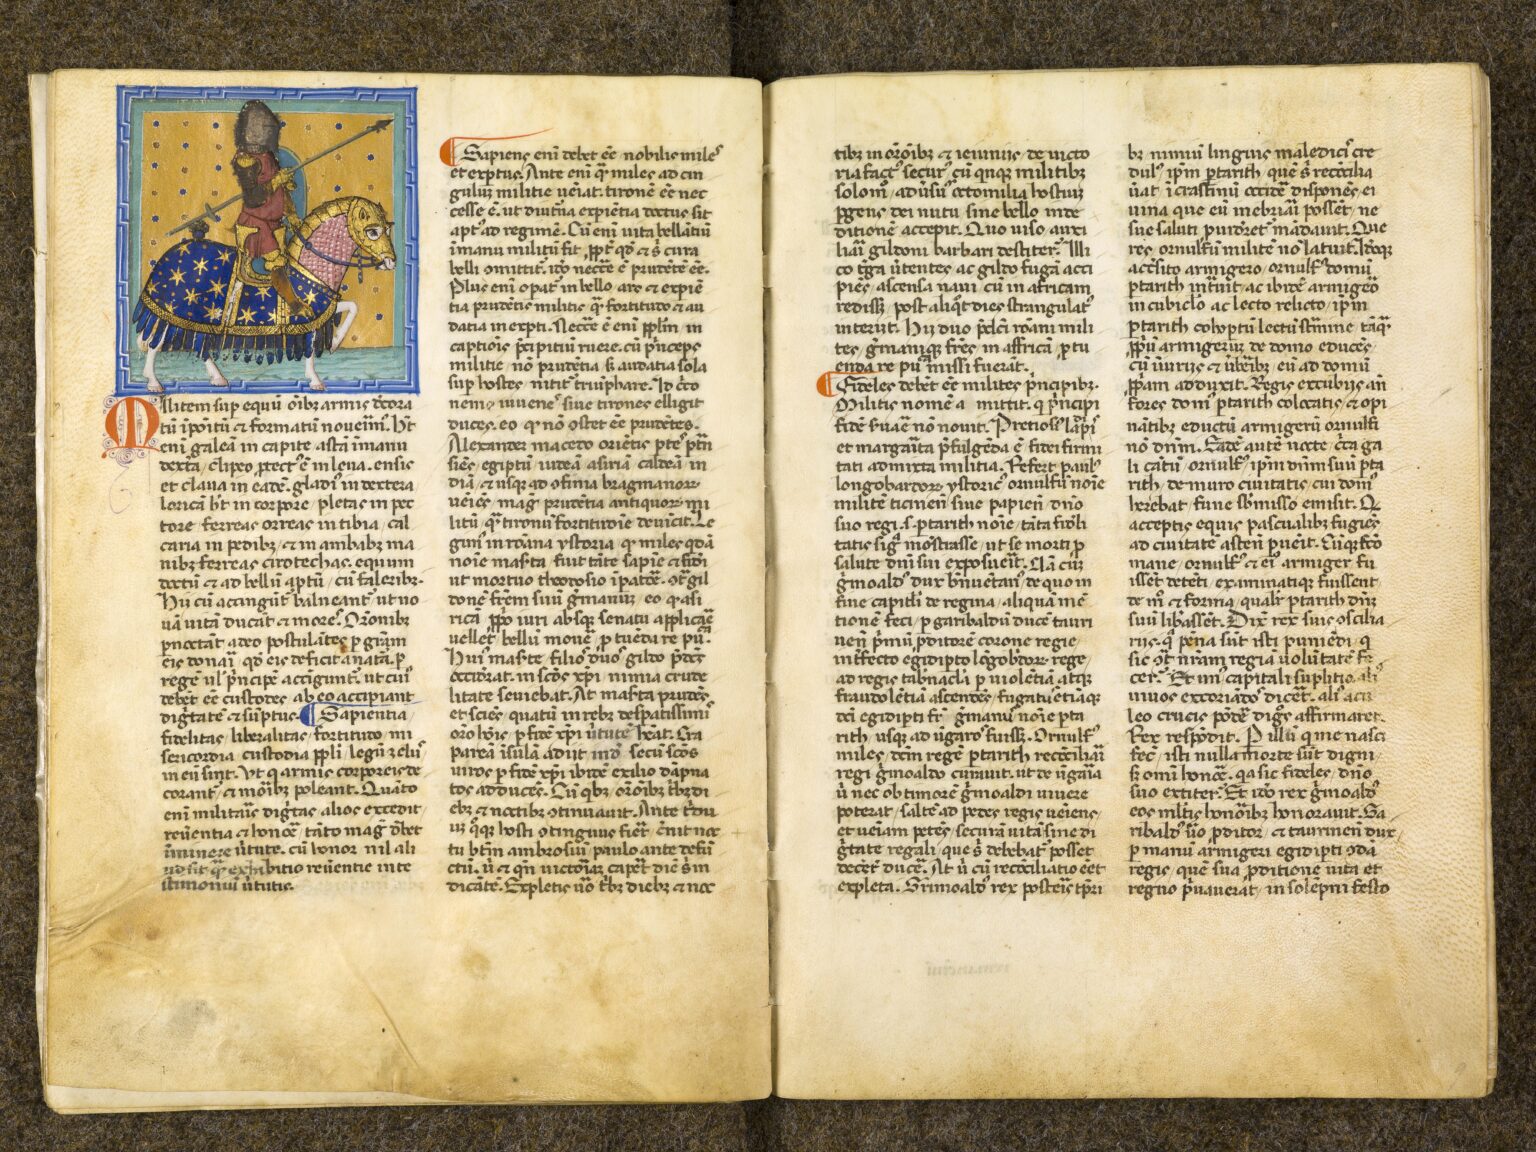 Militem sup equũ oĩbz armis decora
tũ ipoſui & formatũ noueĩm. Ht
enĩ galeã in capite aſtã ĩmanu
dextra / clipeo ꝓtect' ē in leua. enſis
et claua in eadē. gladi' in dextera
loricã ht in corpore / pletas in pec
tore ferreas orreas in tibia / cal
caria in pedibz / & in ambabz ma
nibz ferreas cirotechas. equum
doctũ & ad bellũ aptũ / cũ faleribz.
Hii cũ accingũt' balneant' / ut no
uã uitã ducãt & mores. Oronibz
ꝑnoctant a deo poſtulãtes ꝑ grãm
eis donari qd' eis deficit a natã. ꝑ
regē ul' prĩcipē accigunt'. ut cui
debēt eē cuſtodes ab eo accipiant
digtatē & sũptus. Sapientia /
fidelitas / liberalitas / fortitudo / mi
sericordia custodia ppli / legum zelus
in eis sint. Ut q armis corporeis de
corant' & morĩbz poleant. Quãto
enĩ militaris digtas alios excedit /
reuẽntia & honorē / tãto mag' debet
eminere ũtute. cũ honor nil ali
ud sit qr̃ exhibitio reuẽntie in te
stimoniũ ũtutis.
Sapiens enĩ debet eē nobilis miles
et exptus. Ante enĩ qr̃ miles ad cin
gulũ militie ueniat. tironē eē nec
cesse ē. ut diutĩna expiẽntia doctus sit
apt' ad regimē. Cũ enĩ uita bellantiũ
ĩmanu militũ sit / ppt' qd' & si cura
belli omittit'. ido necceē ē prudētē eē.
Plus enĩ opat' in bello ars & expiē
tia prudētis militis / qr̃ fortitudo & au
datia inexpti. Neccē ē enĩ pplm in
captiois prcipitiũ ruere. cũ princeps
militie nõ prudētia ß audatia sola
sup hostes nitit' triũphare. Id cir̃co
nemo iuuenes siue tirones elligit
duces. eo qr nõ ostet eē prudētes.
Alexander macedo oriētis ptes ptrã
siēs / egiptũ / iudeã / asiriã / caldeã / in
diã / & usqꝫ ad ofinia bragmanorꝫ
ueniēs / mag' prudētia antiquorꝫ mi
litũ / qr̃ tironũ fortitudie deuicit. Le
gim' in romana ystoria / qr miles qdã
noĩe mascta / fuit tãte sapiẽ & fidei
ut mortuo theodosio ĩpatore. otr̃ gil
donē frēm suũ gmanũ / eo qr asi
ricã / ꝓpo iuri absqꝫ senatu applicare
uellet bellũ mouē / ꝓ tuēda re pu.
Hui' mascte filios duos gildo prdcs
occidrat. in scõs xpi nimia crude
litate seuiebat. At mascta prudēs
et sciēs / quatũ in rebz despatissimis
oro hoĩs / ꝓ fide xpi ũtutē heat. Cra
pareã isulã adiit / inde secũ scõs
uiros ꝓ fide xpi ibidē exilio dãpna
tos adducēs. Cũ qbz / oroĩbz trbz di
ebz & noctibz otinuauit. Ante tridu
ũ / qꝫ hosti otinguus fiet / cernit noc
tu btm ambrosiũ paulo ante defũ
ctũ. ũ & qn uictoriã capet diē sĩn
dicãte. Expletis uõ trbz diebz & noc
tibz in orõibz & ieiuniis / de uicto
ria fact' secur' / cũ qnqꝫ militibz
solom' / aduersus octo milia hostiũ
ꝑgens dei nutu sine bello inde
ditionē accepit. Quo uiso auxi
liarii gildoni barbari destiter̃. Illi
co tr̃ga ũtentes / ac gildo fugã acci
piēs / ascensa naui cũ in africam
redisset / post aliqt dies strangulat'
interiit. Hii duo prdci romani mili
tes / gmaniqꝫ frēs in affricã / ꝓ tu
enda re pu. missi fuerãt.
Fideles debēt eē milites prncipibz.
Militis nomē a mittit. q prncipi
fidē suã nõ nouit. Pretios' lapis
et margarita prfulgēda ē / fidei firmi
tati admixta militia. Refert paul'
longobardorꝫ ystoric' / ornulfũ noĩe
militē ticinēsē siue papiēn / dño
suo regi .s. ptarith noĩe / tãta fideli
tatis signa mõstrasse / ut se morti ꝓ
salute dñi sui exposuerit. Nã cũ
gmoald' dux bñuētan' / de quo in
fine capitli de regina / aliquã mē
tionē feci / ꝑ garibaldũ ducē tauri
nen / primũ ꝓditorē corone regie /
infecto egidipto lõgobdorꝫ rege /
ad regis tabnacla ꝑ uiolētiã atqꝫ
fraudolētiã ascendēs / fugatus etiãqꝫ
dci egidipti fr̃ gmanus noĩe pta
rith / usqꝫ ad ũgaros fuisset. Ornulf'
miles / dcm regē ptarith recõciliari
regi gmoaldo curauit. ut de ũgaria
ũ nec ob timorē gmoaldi uiuere
poterat / saltē ad pedes regis ueiens
et ueniam petēs / securã uitã sine di
gtate regali / que si debebat' posset
decet' ducē. At ũ cũ recõciliatio eēt
expleta. Grimoald' rex posteris tpri
bz nimiũ linguis maledicis cre
dulus / ipm ptarith / quē si recõcilia
ũat / ĩ crastinũ occidē disponēs / ei
uina que eũ inebriari possent / ne
sue saluti puidret mãdauit. Que
res / ornulfũ militē nõ latuit. Idcoqꝫ
accersito armigero / ornulf' domũ
ptarith intuit / ac ibidē armigero
in cubiclo ac lecto relicto / ipm
ptarith cohoptũ lectũ stramine tãqꝫ
ꝓpriũ armigerũ / de domo educēs /
cũ iniuriis & ũberibz / eũ ad domũ
ꝓpriam adduxit. Regis excubiis an
fores dom' ptarith colocatis / & opi
nãtibz eductũ armigerũ ornulfi
nõ dñm. Eadē autē nocte / circa ga
li cãtũ / ornulf' / ipm dñm suũ pta
rith / de muro ciuitatis cui dom'
herēbat / fune submisso emisit. Q
acceptis equis pascualibz fugiēs
ad ciuitatē astēn puēit. Cũqꝫ fco
mane / ornulf' & ei' armiger fu
issēt detēti / examinatiqꝫ fuissent
de mo & forma / qualit' ptarith dñm
suũ libassēt. Dix rex suis cõcilia
riis. qr pēna sũt isti puniēdi / q
sic otr̃ nrãm regiã uolũtatē fe
cer̃. Et un' capitali suplitio / ali'
uiuos excoriãdos dicēt. ali' acu
leo crucis põdē dignos affirmaret.
Rex respõdit. P illũ q me nasci
fecit / isti nulla morte sũt digni
ß omĩ honore. qa sic fideles / dño
suo extiter̃. Et ido rex gmoald'
eos mltis honoribz honorauit. Ga
ribald' uõ ꝓditor / & taurinen dux /
ꝑ manũ armigeri egidipti odã
regis / quē sua ꝓditione uita et
regno priuauerat / in solēpni festo